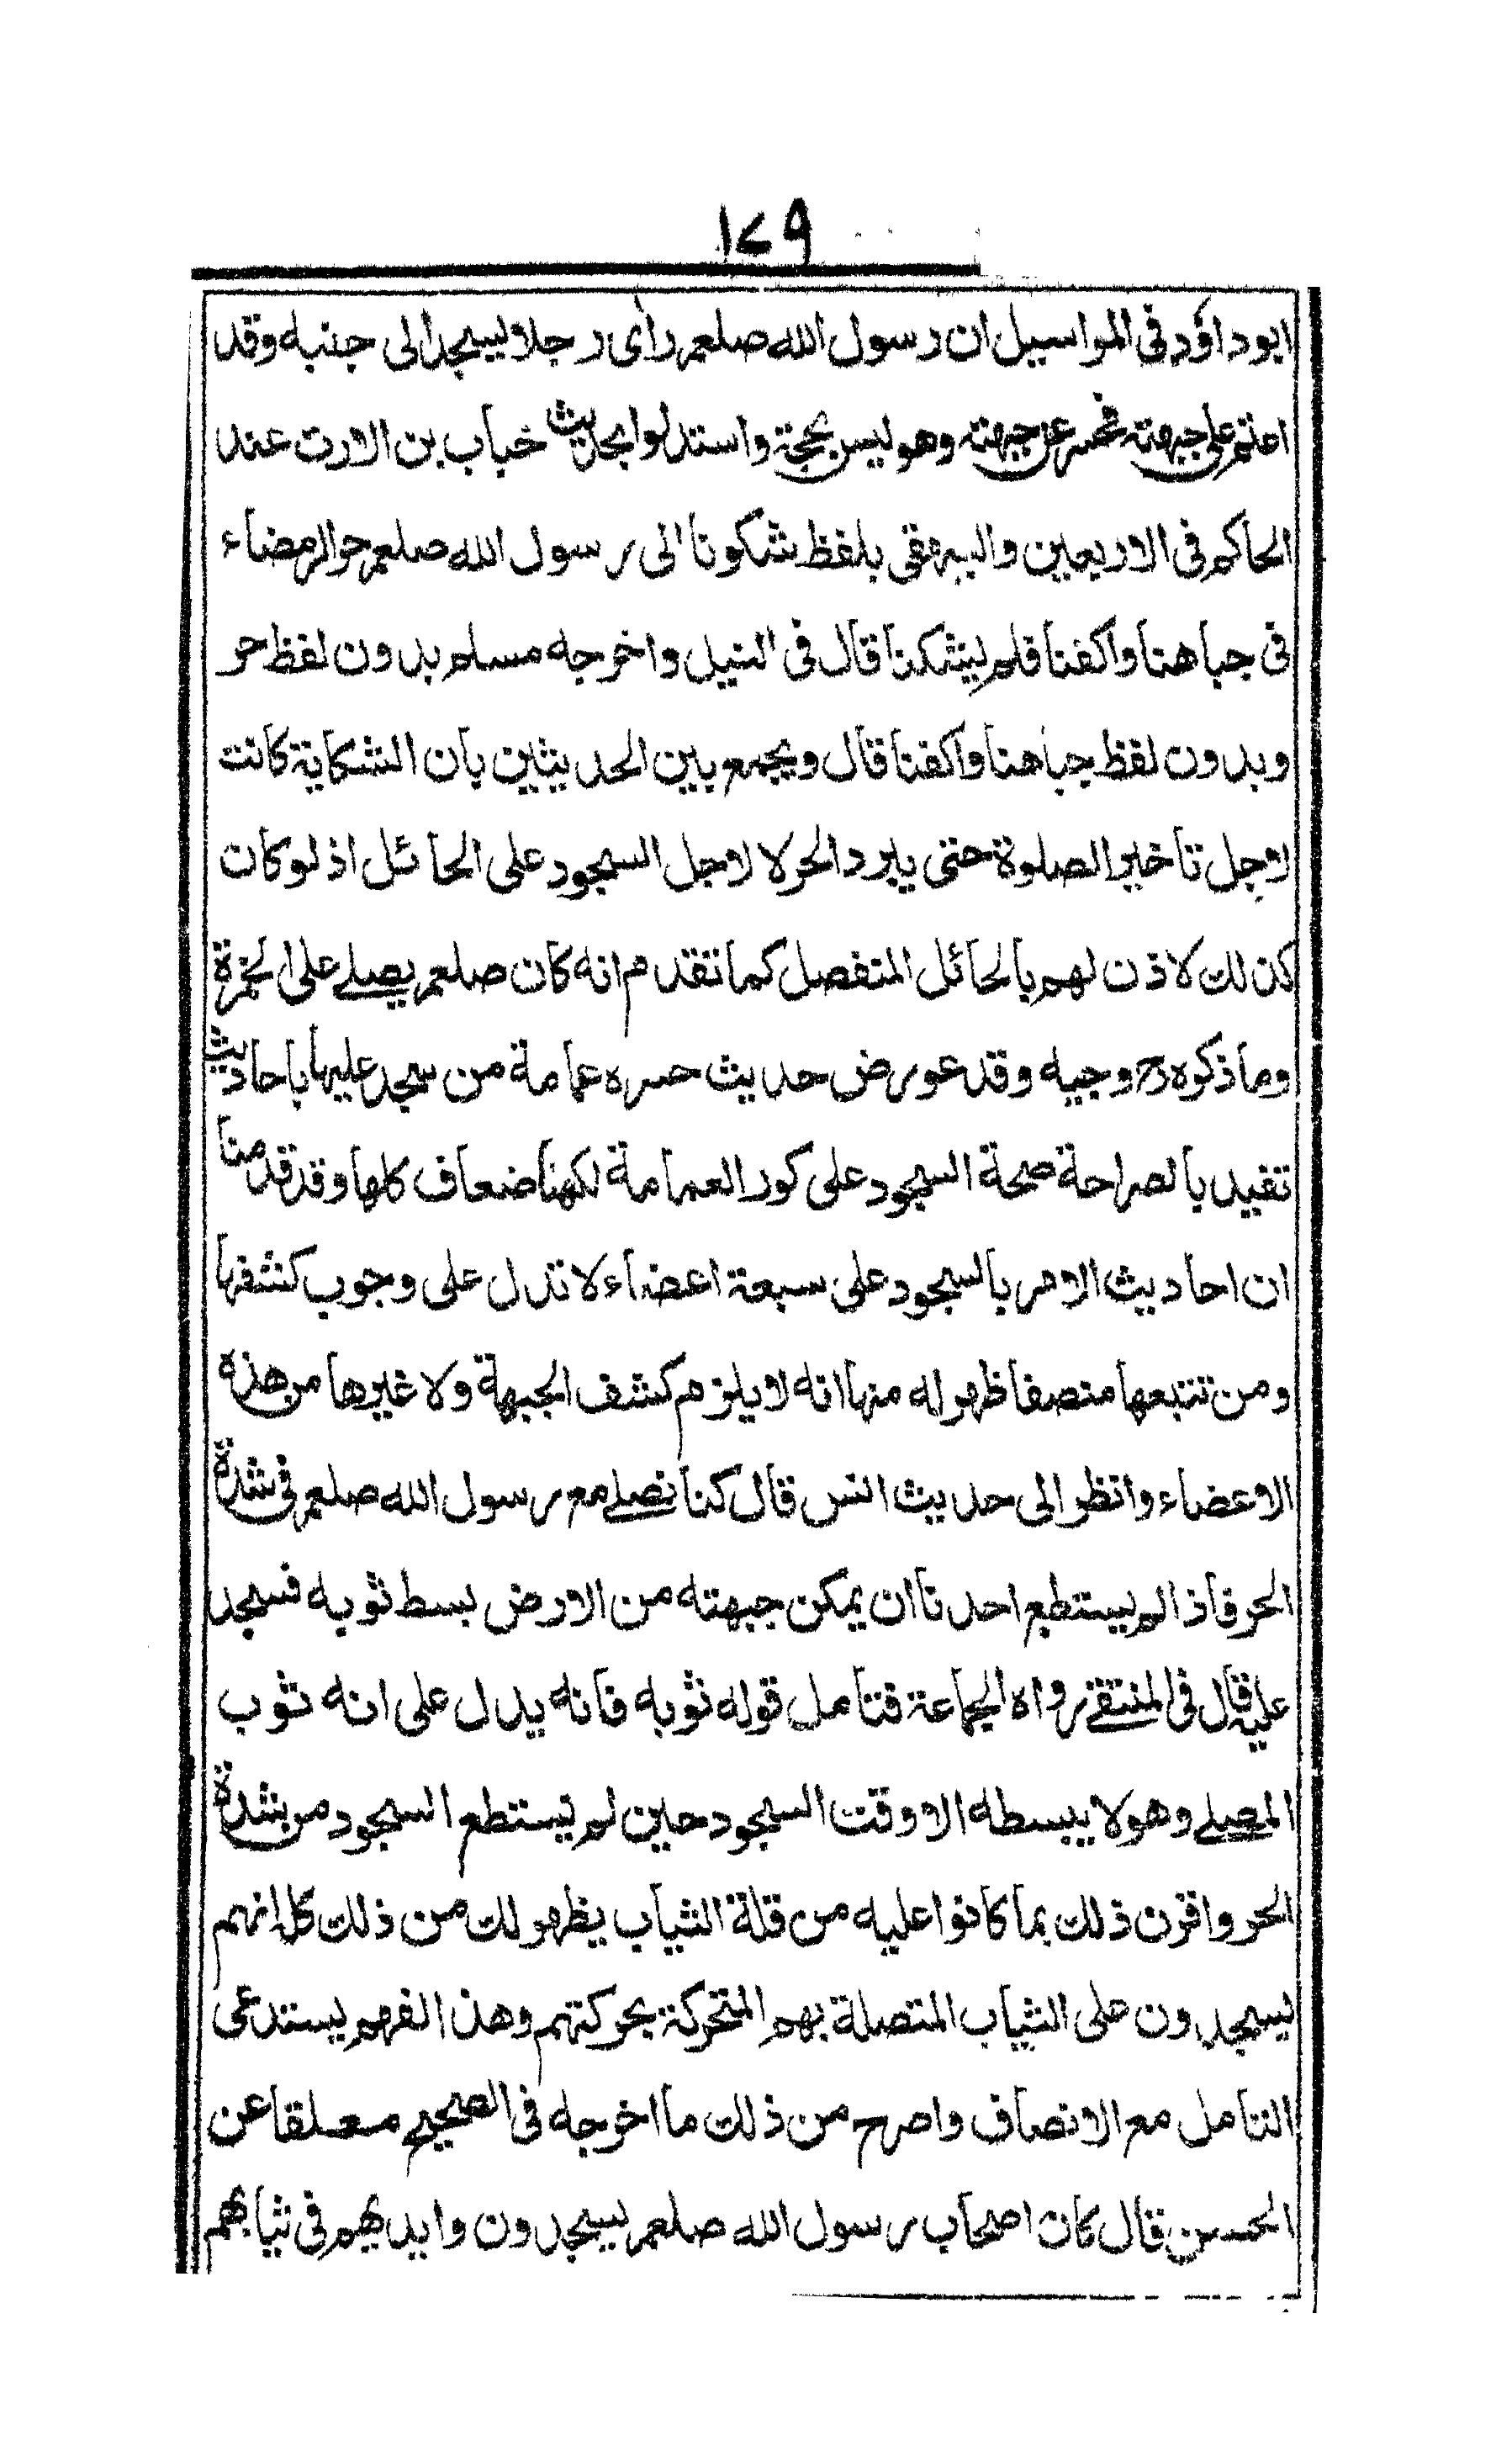 ١٧٩
ابوداؤد فى المراسيل ان رسول الله صلعم رأى رجلا يسجد الى جنبه وقد
اعتم على جبهته فحسر عن جبهته وهو ليس بحجة واستدلوا بحديث خباب بن الارت عند
الحاكم فى الاربعين والبيهقى بلفظ شكونا الى رسول الله صلعم حر الرمضاء
فى جباهنا واكفنا فلم يشكنا قال فى النيل واخرجه مسلم بدون لفظ حر
وبدون لفظ جباهنا واكفنا قال ويجمع بين الحديثين بان الشكاية كانت
لاجل تاخير الصلوة حتى يبرد الحر لا لاجل السجود على الحائل اذ لو كان
كذلك لاذن لهم بالحائل المنفصل كما تقدم انه كان صلعم يصلے على الخمرة
وما ذكره رح وجيه وقد عورض حديث حسره عمامة من سجد عليها باحاديث
تفيد بالصراحة صحة السجود على كور العمامة لكنها ضعاف كلها وقد قدمنا
ان احاديث الامر بالسجود على سبعة اعضاء لا تدل على وجوب كشفها
ومن تتبعها منصفا ظهر له منها انه لا يلزم كشف الجبهة ولا غيرها من هذه
الاعضاء وانظر الى حديث انس قال كنا نصلے مع رسول الله صلعم فى شدة
الحر فاذا لم يستطع احدنا ان يمكن جبهته من الارض بسط ثوبه فسجد
عليه قال فى المنتقے رواه الجماعة فتامل قوله ثوبه فانه يدل على انه ثوب
المصلے وهو لا يبسطه الا وقت السجود حين لم يستطع السجود من شدة
الحر واقرن ذلك بما كانوا عليه من قلة الثياب يظهر لك من ذلك كله انهم
يسجدون على الثياب المتصلة بهم المتحركة بحركتهم وهذا الفهم يستدعى
التامل مع الانصاف واصرح من ذلك ما اخرجه فى الصحيح معلقا عن
الحسن قال كان اصحاب رسول الله صلعم يسجدون وايديهم فى ثيابهم